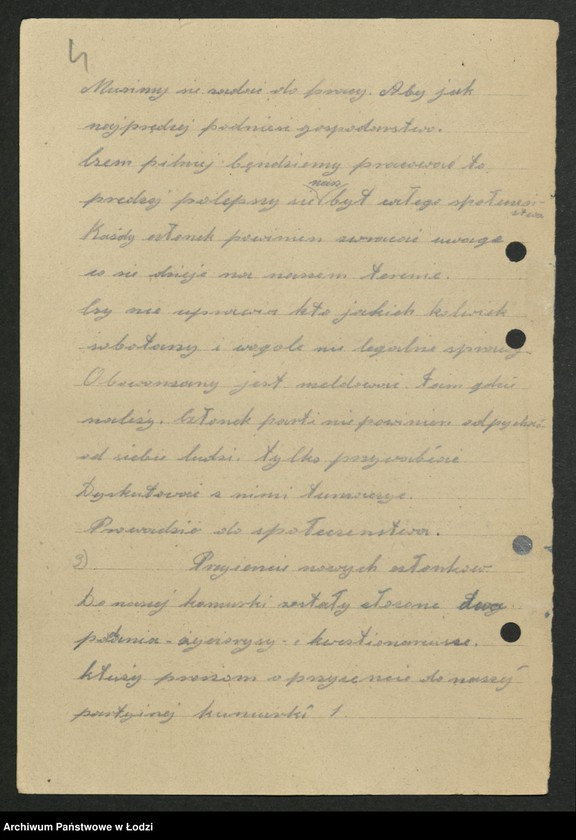 4
Musimy sie zadac do pracy. Aby jak
najprędzej podnieść gospodarstwo.
Czem pilnij będziemy pracować to
prędzej polepszy sie nasz byt całego społeczeń-
stwa
Każdy członek powinien zwracać uwage
co sie dzieje na naszem terenie.
Czy nie uprawia kto jakich kolwiek
sobotarzy i wogole nie legalne sprawy.
Obowonzany jest meldować. tam gdzie
należy. Członek parti nie powinien odpychać
od siebie ludzi. tylko przywabiać
Dyskutować z nimi
Prowadzić do społeczenstwa.
2) Przyjencie nowych członkow
Do naszej kamurki zostały złozone dwa
podania - życiorysy - i kwestionariusze.
ktuży proszom o przyjencie do naszej
partyjnej kumurki 1.
Archiwum Państwowe w Łodzi